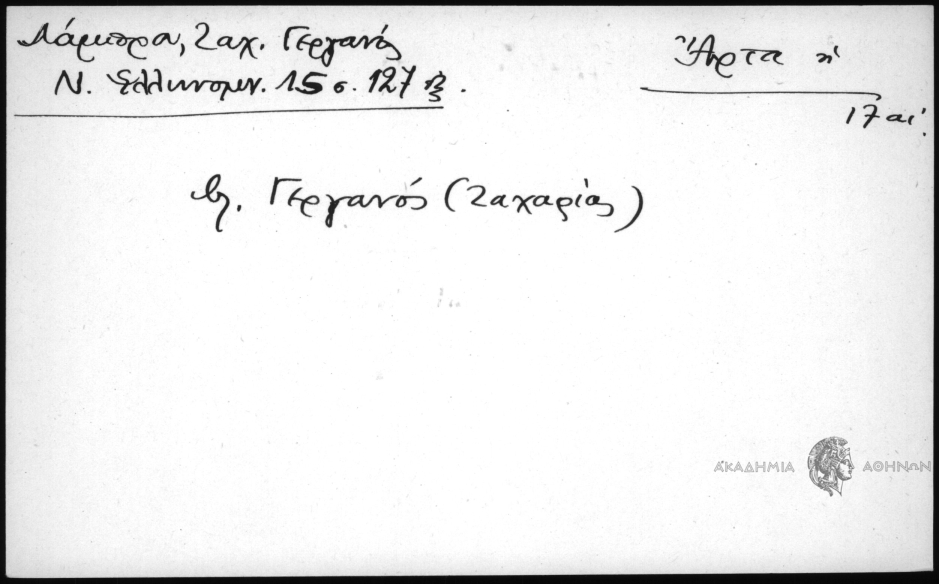 Λάμπρα, Ζαχ. Γεργανός
Ν. Ἑλληνομν. 15 σ. 127 ἑξ.
Ἄρτα ἡ
17 αἰ.
βλ. Γεργανός (Ζαχαρίας)
ΑΚΑΔΗΜΙΑ ΑΘΗΝΩΝ